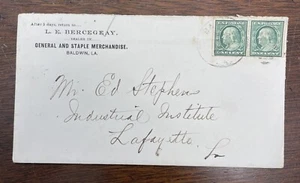 After 5 days, return to
L. E. BERCEGEAY,
DEALER IN
GENERAL AND STAPLE MERCHANDISE.
BALDWIN, LA.
Mr. Ed Stephens
Industrial Institute
Lafayette
La